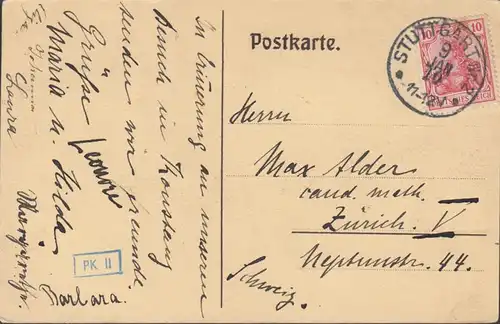 Postkarte.
STUTTGART
9
JAN
10
11-12 V.
10
10
Herrn
Max Alder
cand. math.
Zürich. V
Neptunstr. 44.
Schweiz.
In Erinnerung an unseren
Besuch in Konstanz
senden wir freundl.
Grüße
Maria u. Hilda
Leonore
Johanna
Laura
Barbara.
PK II